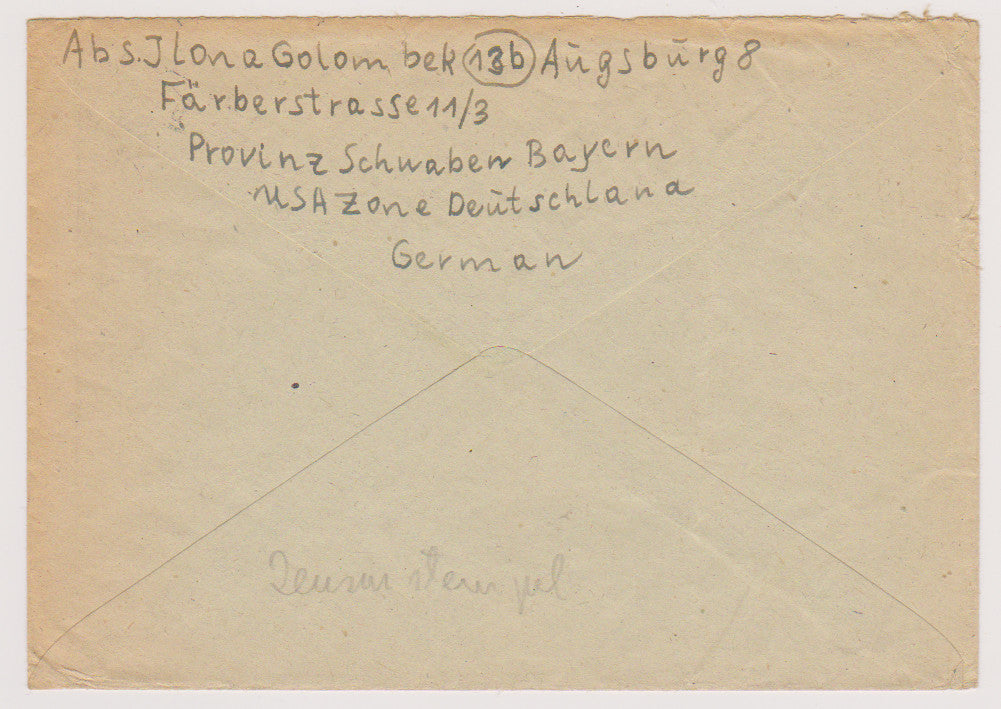 Abs. Ilona Golombek 13b Augsburg 8
Färberstrasse 11/3
Provinz Schwaben Bayern
USA Zone Deutschland
German
Zensurstempel